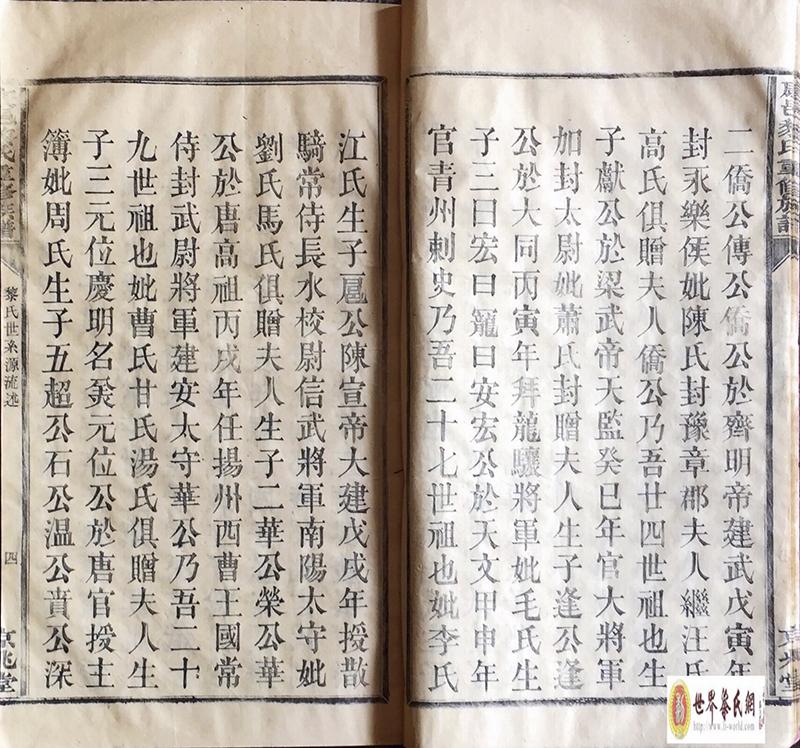 二僑公傳公僑公於齊明帝建武戊寅年
封永樂侯妣陳氏封豫章郡夫人繼汪氏
高氏俱贈夫人僑公乃吾廿四世祖也生
子獻公於梁武帝天監癸巳年官大將軍
加封太尉妣蕭氏封贈夫人生子逢公逢
公於大同丙寅年拜龍驤將軍妣毛氏生
子三曰宏曰寵曰安宏公於天文甲申年
官青州刺史乃吾二十七世祖也妣李氏
江氏生子扈公陳宣帝大建戊戌年授散
騎常侍長水校尉信武將軍南陽太守妣
劉氏馬氏俱贈夫人生子二華公榮公華
公於唐高祖丙戌年任揚州西曹王國常
侍封武尉將軍建安太守華公乃吾二十
九世祖也妣曹氏甘氏湯氏俱贈夫人生
子三元位慶明名羙元位公於唐官授主
簿妣周氏生子五超公石公溫公賁公深
黎氏世系源流述
四
京兆堂
世界黎氏網